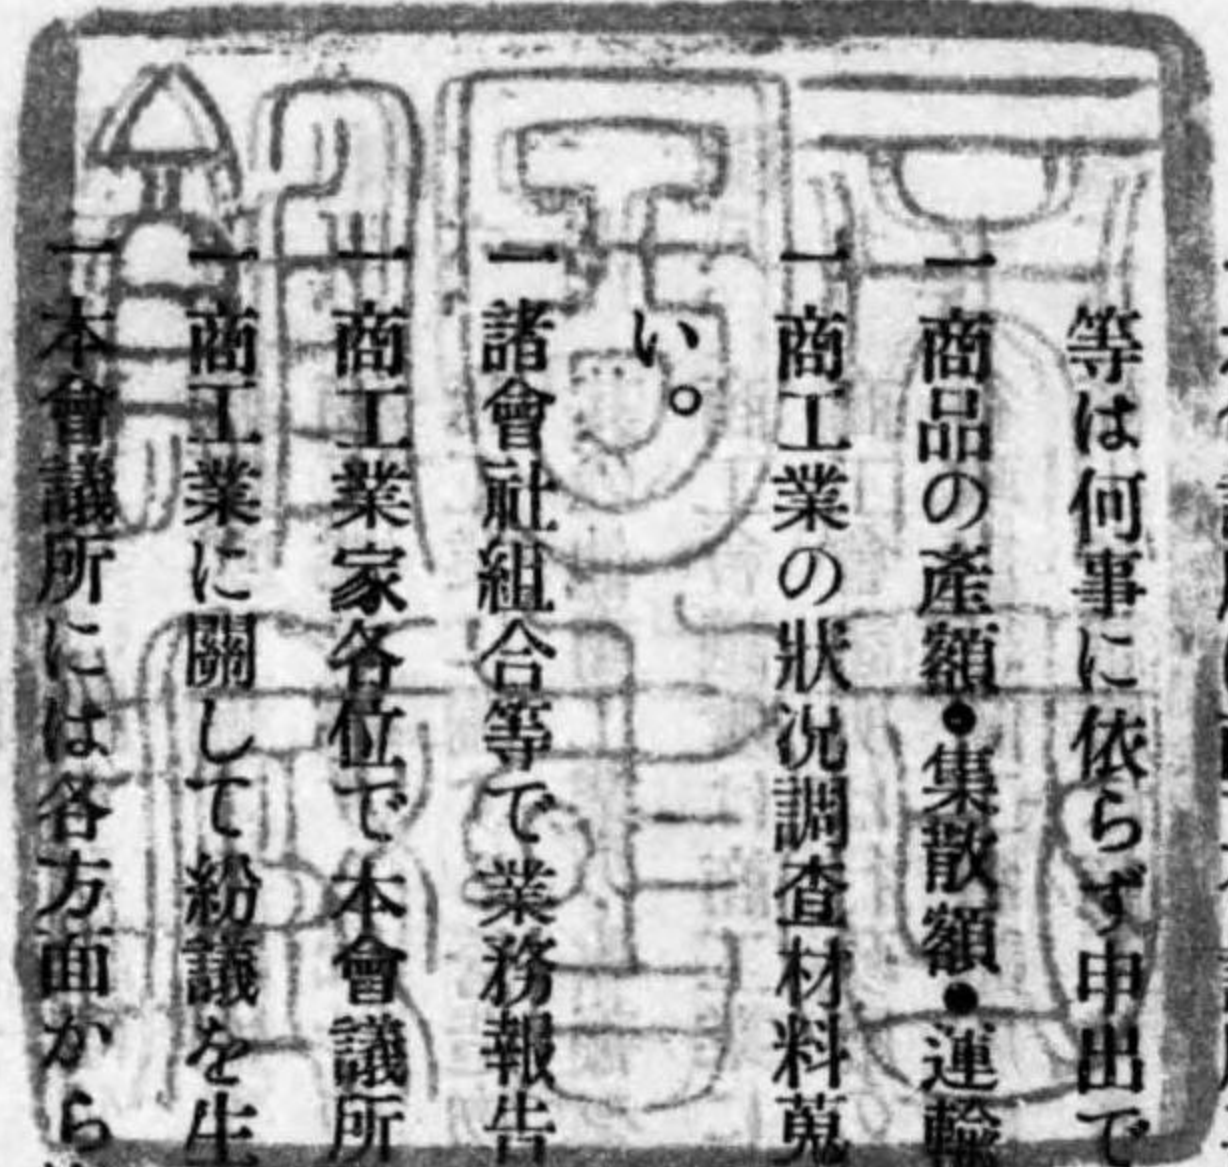 等は何事に依らず申出で
一 商品の産額●集散額●運輸
一 商工業の狀況調査材料蒐
い。
一 諸會社組合等で業務報告
一 商工業家各位で本會議所
一 商工業に關して紛議を生
一 本會議所には各方面から